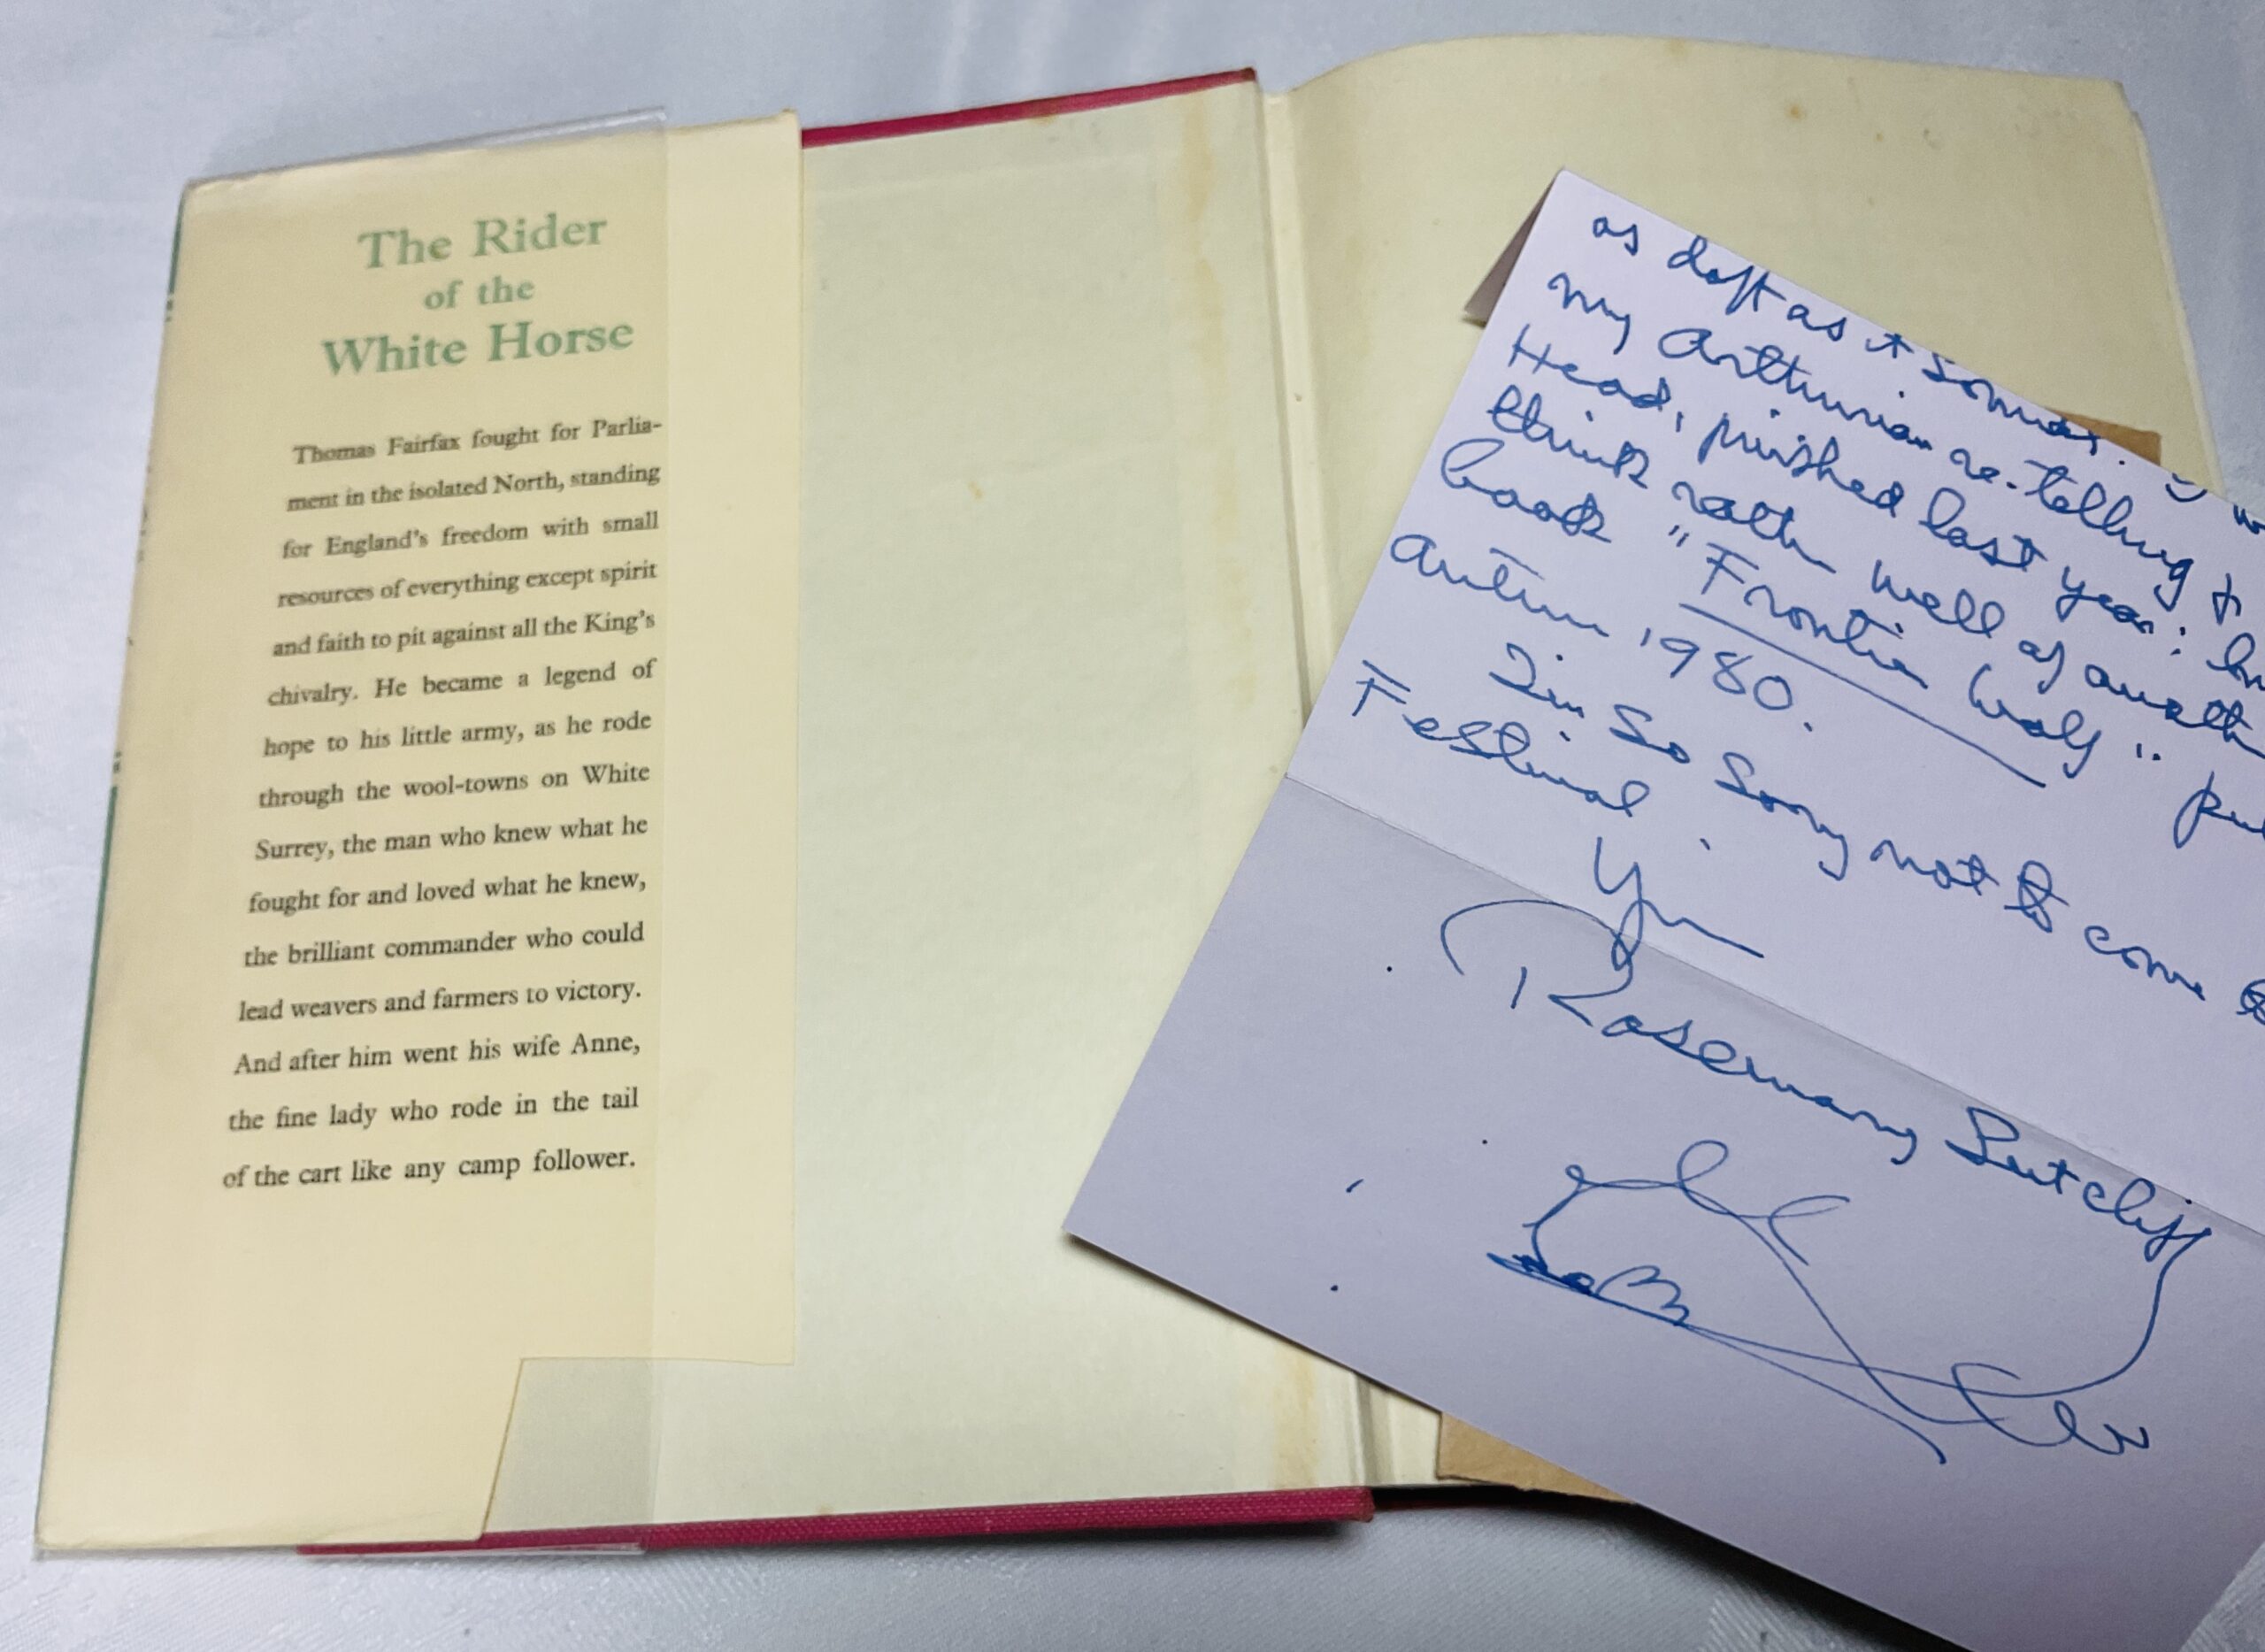 The Rider
of the
White Horse
Thomas Fairfax fought for Parlia-
ment in the isolated North, standing
for England's freedom with small
resources of everything except spirit
and faith to pit against all the King's
chivalry. He became a legend of
hope to his little army, as he rode
through the wool-towns on White
Surrey, the man who knew what he
fought for and loved what he knew,
the brilliant commander who could
lead weavers and farmers to victory.
And after him went his wife Anne,
the fine lady who rode in the tail
of the cart like any camp follower.
as daft as it sounds.
my Arthurian re-telling
Head, finished last year;
think rather well of another
book "Frontier Wolf"
Autumn 1980.
I'm so sorry not to come to
Festival.
Yrs
Rosemary Sutcliff